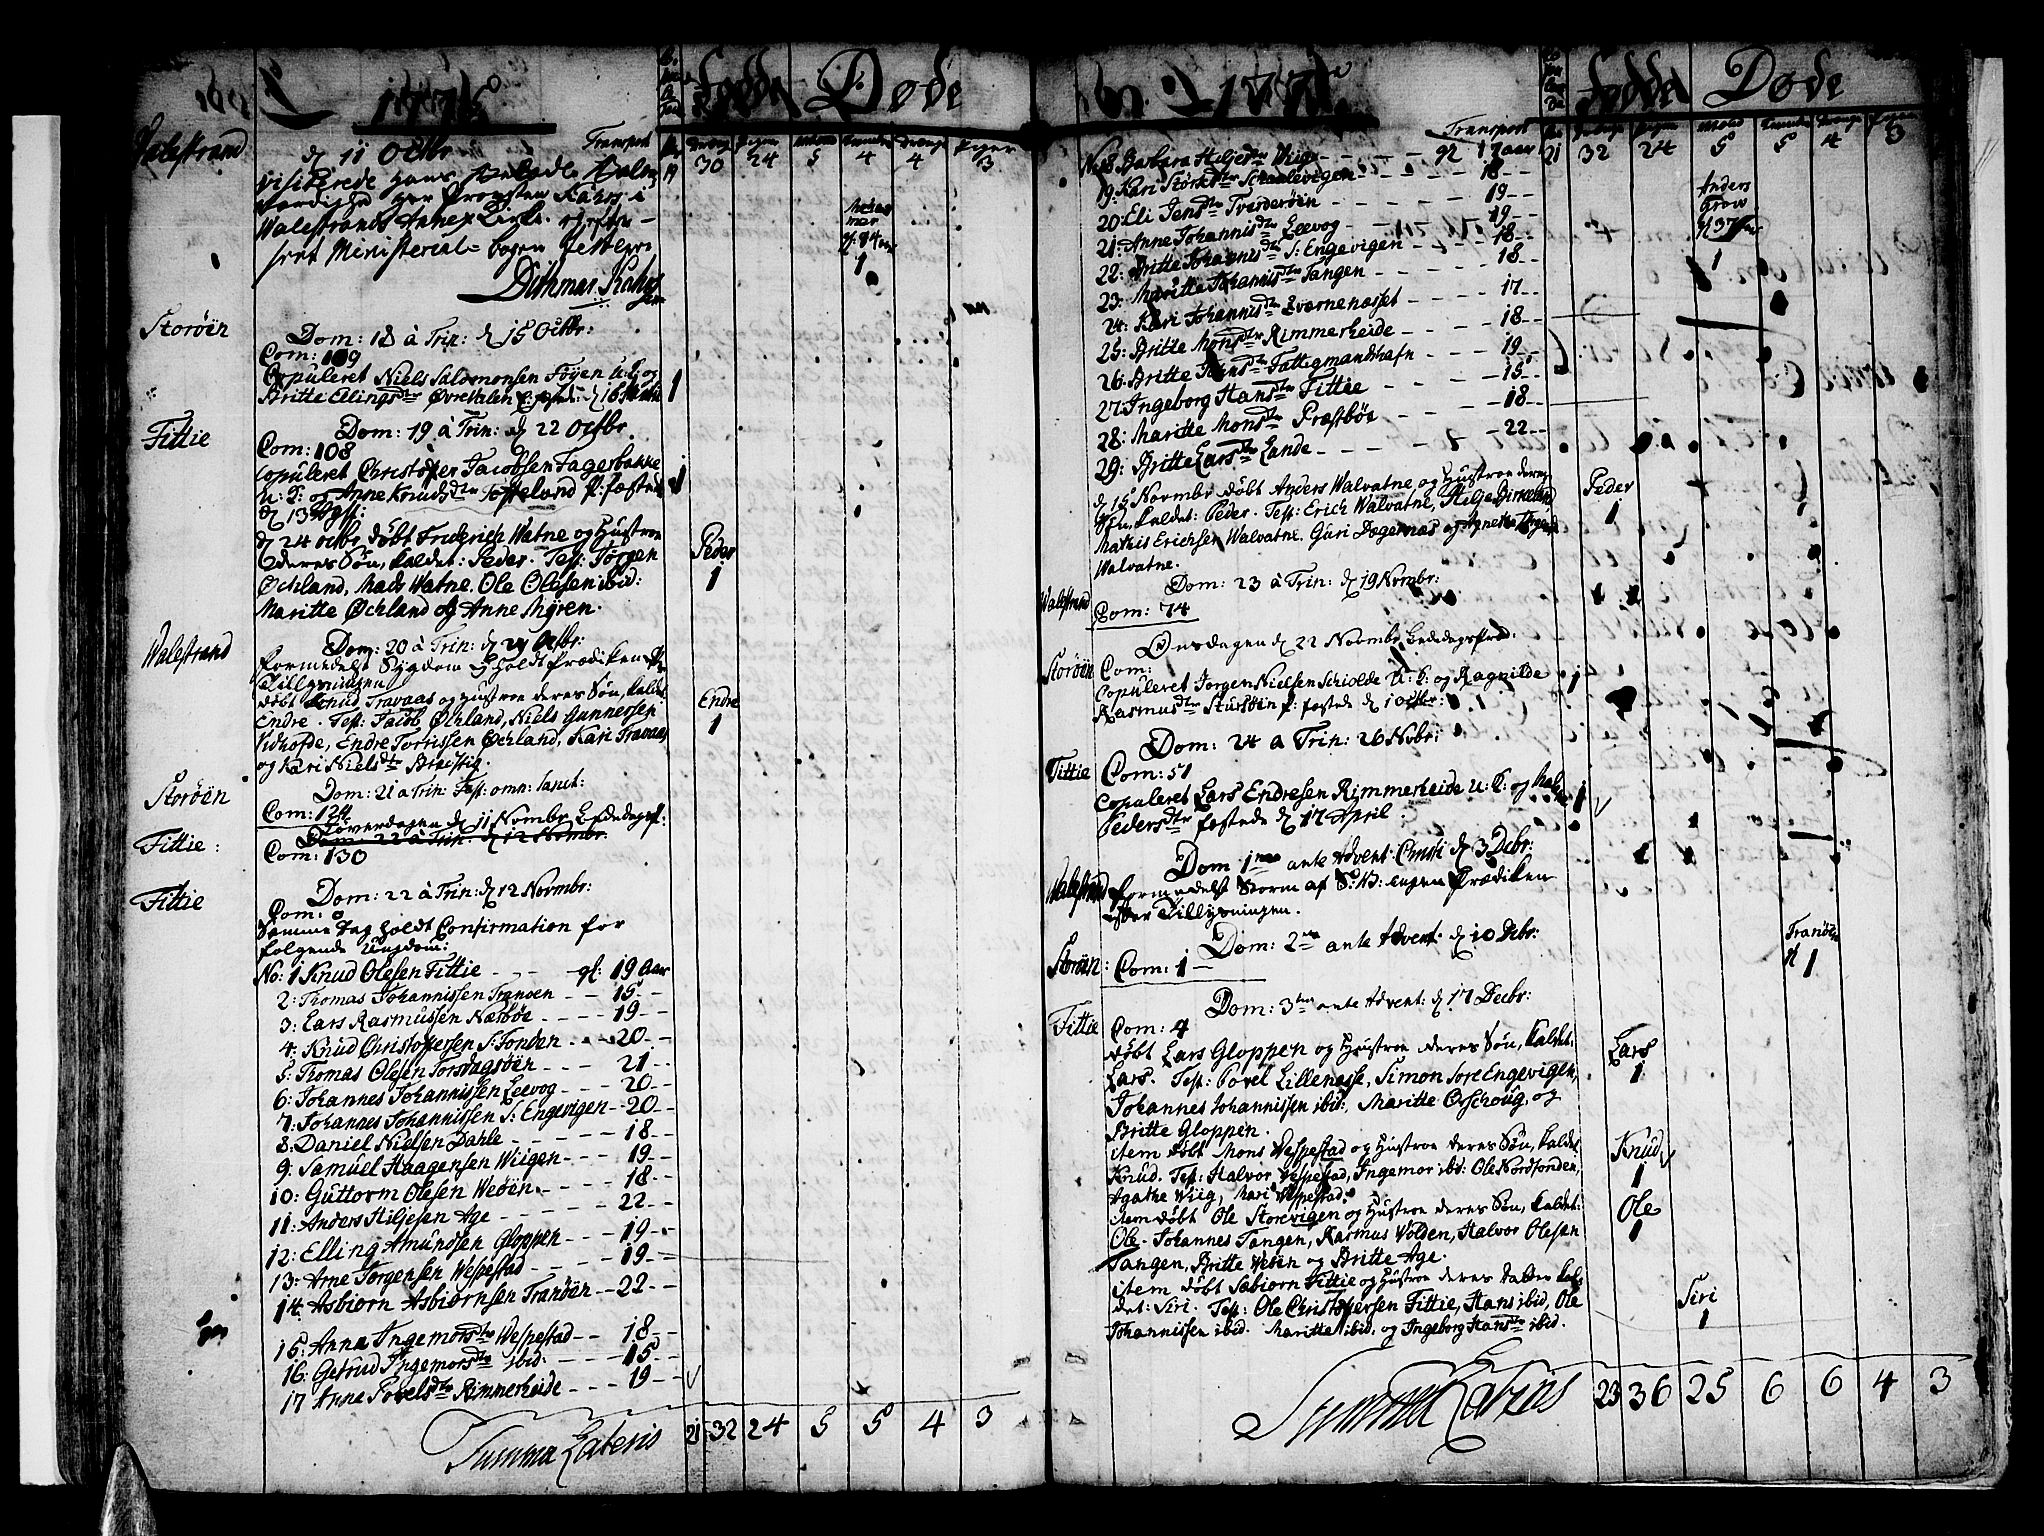 Døde
Transport
30 24 5 4 4 3
Walestrand
d 11 Octbr
visiterede Hans
Værdighed Her Provsten Kahrs i
Walestrands Annex Kirke
Ministerial-bogen
1
Storöen
Dom: 18 à Trin: d 15 Octbr:
Com: 109
Copuleret Niels Salomonsen og
Britte Ellingsdtr Øvrevalen
1
Fittie
Dom: 19 à Trin: d 22 Octbr
Com: 108
Copuleret Christopher Jacobsen Fagerbakke
U: K: og Anne Knudsdtr P: fæstede
d 13 Agst:
d 24 Octbr døbt Friderich Watne og Hustroe
deres Søn, kaldet: Peder. Test: Jørgen
Øchland, Mads Watne. Ole Olesen ibid:
Maritte Øchland og Anne Myren.
Peder
1
Walestrand
Dom: 20 à Trin: d 29 Octbr:
formedelst Sygdom ey holdt Prædiken
Tillysningen
døbt Knud Travaas og Hustroe deres Søn, kaldet
Endre. Test: Jacob Øchland, Niels Gunnersen
Vidhofde, Endre Torrissen Øchland, Kari Travaas,
og Kari Nielsdtr
Endre
1
Storöen
Dom: 21 a Trin: Fest: omn: sanct:
Com: 124
Fittie:
Løverdagen d 11 Novmbr
Dom: 22 à Trin: d 12 Novmbr.
Com: 130
Fittie
Dom: 22 à Trin: d 12 Novmbr:
Com: 0
Samme dag holdt Confirmation for
følgende Ungdom:
No: 1 Knud Olesen Fittie - - - gl: 19 Aar
2: Thomas Johannissen Tranöen - - 15 - -
3: Lars Rasmussen Næsbøe - - - - 19 - -
4: Knud Christophersen S: Fonden - - - 20 - -
5: Thomas Olesen Torsdagsøen - - - 21 - -
6: Johannes Johannissen Leevog - - - 20 - -
7: Johannes Johannissen S: Engevigen - - 20 - -
8: Daniel Nielsen Dahle - - - - - - 18 - -
9: Samuel Haagensen Wiigen - - - 19 - -
10: Guttorm Olesen Weøen - - - - 18 - -
11: Anders Hiljesen Age - - - - - - 22 - -
12: Elling Amundsen Gloppen - - - 19 - -
13: Arne Jørgensen Wespestad - - - 19 - -
14: Asbiørn Asbiørnsen Tranöen - - 22 - -
15: Anna Ingemorsdtr Wespestad - - 18 - -
16: Getrud Ingemorsdtr ibid: - - - 15 - -
17 Anne Povelsdtr Rimmerheide - - - 19 - -
Summa Lateris
21 32 24 5 5 4 3
Døde
Transport
21 32 24 5 5 4 3
No 18 Barbara Hiljedtr Wiig - - - - gl 17 aar
19: Kari Størksdtr Skaalevigen - - - - - 18 - -
20: Eli Jensdtr Tvarderöen - - - - - 19 - -
21: Anne Johannisdtr Leevog - - - - 19 - -
22: Britte Johannisdtr S: Engevigen - - - 18 - -
23: Maritte Johannisdtr Tangen - - - - 18 - -
24: Kari Johannisdtr Kværnenæsset - - - - 17 - -
25: Britte Monsdtr Rimmerheide - - - - 18 - -
26: Britte Jensdtr Fattigmandshafn - - - 19 - -
27: Ingeborg Hansdtr Fittie - - - - - 15 - -
28: Maritte Monsdtr Præstbøe - - - - 18 - -
29: Britte Larsdtr Lande - - - - - 22 - -
Anders
1
d 15 Novmbr døbt Anders Walvatne og Hustroe deres
Søn, kaldet: Peder. Test: Erich Walvatne, Hilje
Mathis Erichsen Walvatne. Guri Dægernæs og Agnethe
Walvatne.
Peder
1
Walestrand
Dom: 23 à Trin: d 19 Novmbr:
Com: 74
Onsdagen d 22 Novmbr
Storöen
Com:
Copuleret Jørgen Nielsen Schiolde U: K: og Ragnilde
Rasmusdtr P: fæstede d 1 Octbr:
1
Dom: 24 a Trin: 26 Nobr:
Fittie
Com: 51
Copuleret Lars Endresen Rimmerheide U: K: og
Pedersdtr fæstede d 17 April.
1
Dom 1ma ante Advent: Christi d 3 Debr:
Walestrand
formedelst Storm af ingen Prædiken
eller Tillysningen.
Dom: 2da ante Advent: d 10 Debr:
Storöen:
Com: 1 -
Tranöen
1
Dom: 3tia ante Advent: d 17 Decbr:
Fittie
Com: 4
døbt Lars Gloppen og Hustroe deres Søn, kaldet:
Lars. Test: Povel Lillenesse, Simon Søre Engevigen,
Johannes Johannissen ibid:, Maritte Orschoug, og
Britte Gloppen.
Lars
1
item døbt Mons Wespestad og Hustroe deres Søn, kaldet
Knud. Test: Halvor Wespestad, Ingemor ibid: Ole Nordfonden,
Agathe Wiig, Mari Wespestad.
Knud
1
item døbt Ole Storevigen og Hustroe deres Søn, kaldet:
Ole. Johannes Tangen, Rasmus Volden, Halvor Olesen
Tangen, Britte Weöen og Britte Age.
Ole
1
item døbt Sæbiørn Fittie og Hustroe deres datter kal-
det: Siri. Test: Ole Christophersen Fittie, Hans ibid, Ole
Johannissen ibid. Maritte ibid, og Ingeborg Hansdtr ibid.
Siri
1
Summa Lateris
23 36 25 6 6 4 3